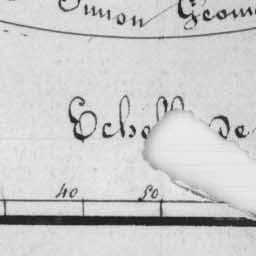 Simon Geom
Echelle de
40 50